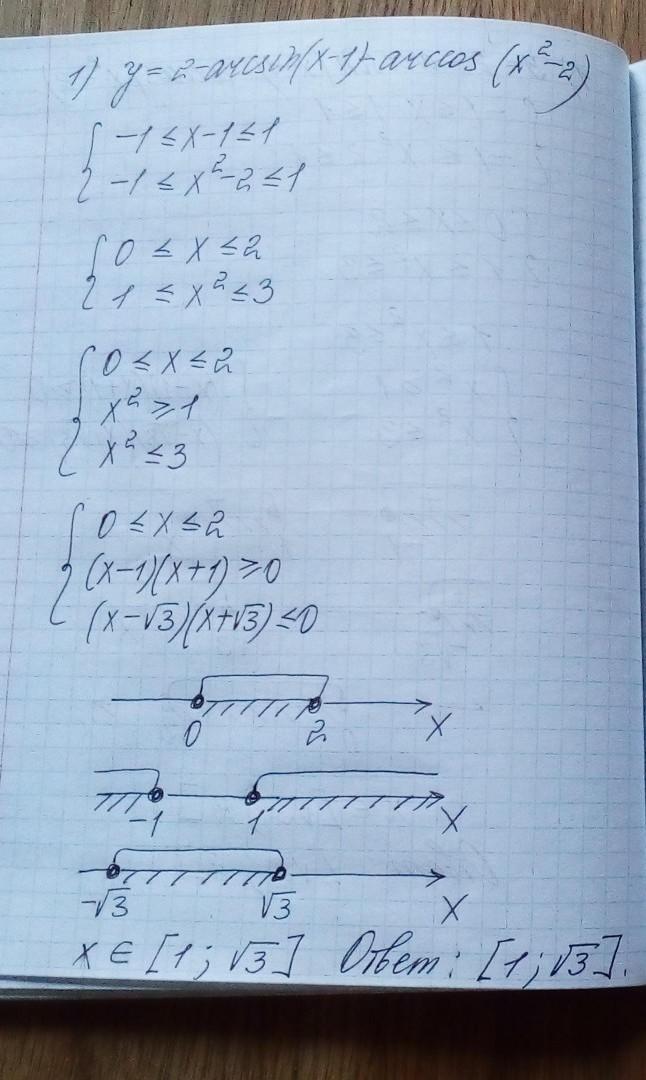 1) y = 2-arcsin(x-1)-arccos (x²-2)
-1 ≤ x-1 ≤ 1
-1 ≤ x²-2 ≤ 1
0 ≤ x ≤ 2
1 ≤ x² ≤ 3
0 ≤ x ≤ 2
x² ≥ 1
x² ≤ 3
0 ≤ x ≤ 2
(x-1)(x+1) ≥ 0
(x-√3)(x+√3) ≤ 0
0 2 x
-1 1 x
-√3 √3 x
x ∈ [1; √3] Ответ: [1; √3].